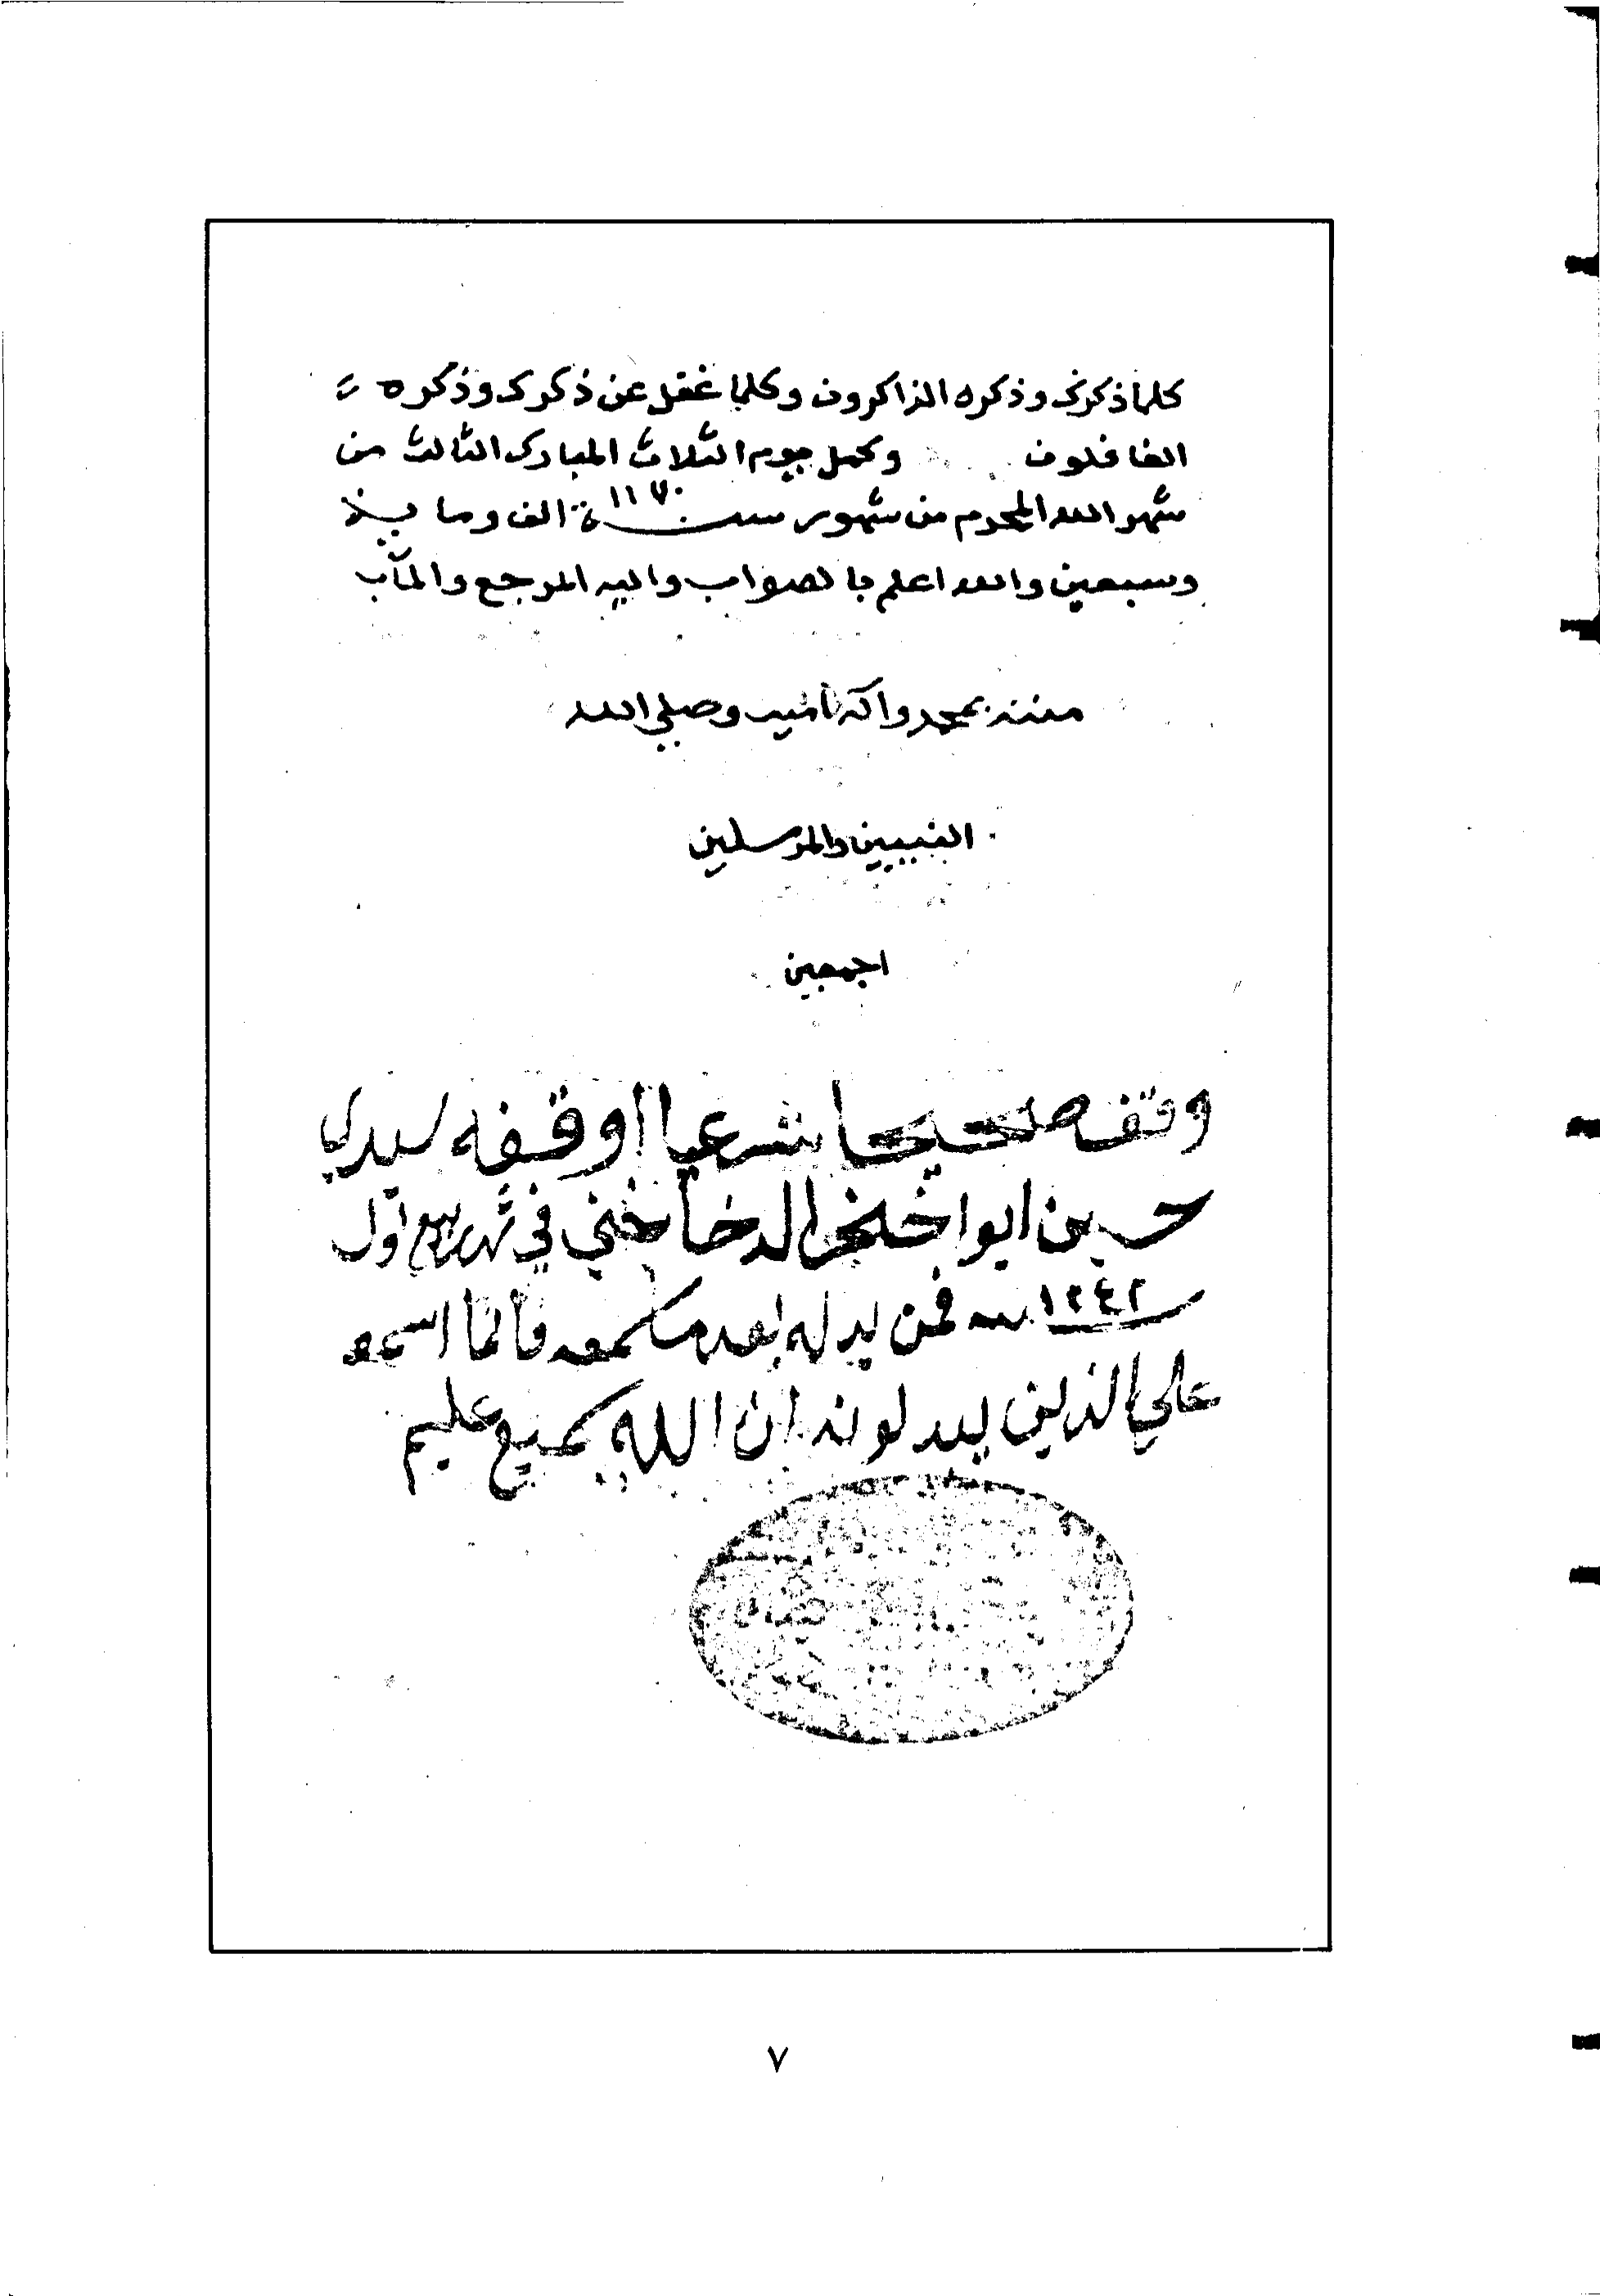 كلما ذكرك وذكره الذاكرون وكلما غفل عن ذكرك وذكره
الغافلون وكمل بيوم الثلاث المبارك الثالث من
شهر الله المحرم من شهور سنة ١١٧٠ الف ومايـة
وسبعين والله اعلم بالصواب واليه المرجع والمآب
بمحمد وآله آمين وصلي الله
النبيين والمرسلين
اجمعين
وقف صحيحا شرعيا اوقفه سيدي
حسين ابوا خنجر الدخاخني في شهر ربيع اول
سنه ١٢٤٢ فمن بدله بعد ما سمعه فانما اسمه
علي الذين يبدلونه ان الله سميع عليم
٧